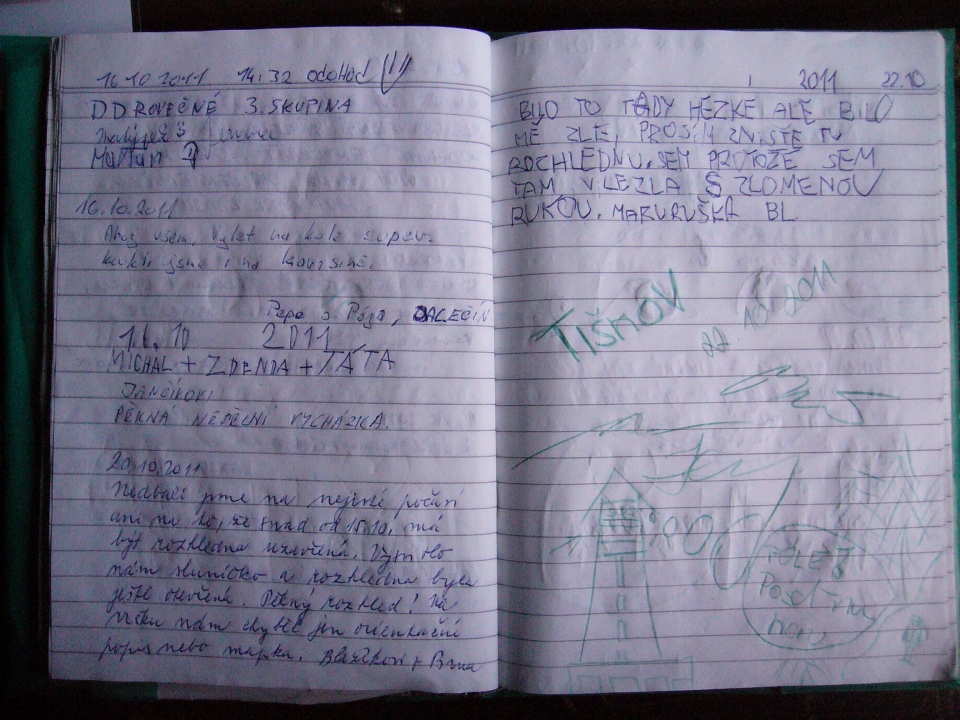 16.10.2011 14:32 odchod
DD ROVEČNÉ 3. SKUPINA
MARIAN
16.10.2011
Ahoj všem, výlet na kole super.
jsme i na
Pepa a Pája, DALEČÍN
16.10 2011
MICHAL + ZDENDA + TÁTA
JANČÍKOVI
PĚKNÁ NEDĚLNÍ VYCHÁZKA.
20.10.2011
Nedbali jsme na nejisté počasí
ani na to, že snad od 15.10. má
být rozhledna uzavřená. Vyšlo
nám sluníčko a rozhledna byla
ještě otevřená. Pěkný rozhled! Na
nám chyběl jen orientační
popis nebo mapka. Blažkovi z Brna
2011 22.10
BYLO TO TADY HEZKE ALE BILO
MĚ ZLE, PROSIM ZNIŠTE TU
ROCHLEDNU. SEM PROTOŽE SEM
TAM VILEZLA S ZLOMENOU
RUKOU. MARURUŠKA BL.
TIŠNOV
22.10.2011